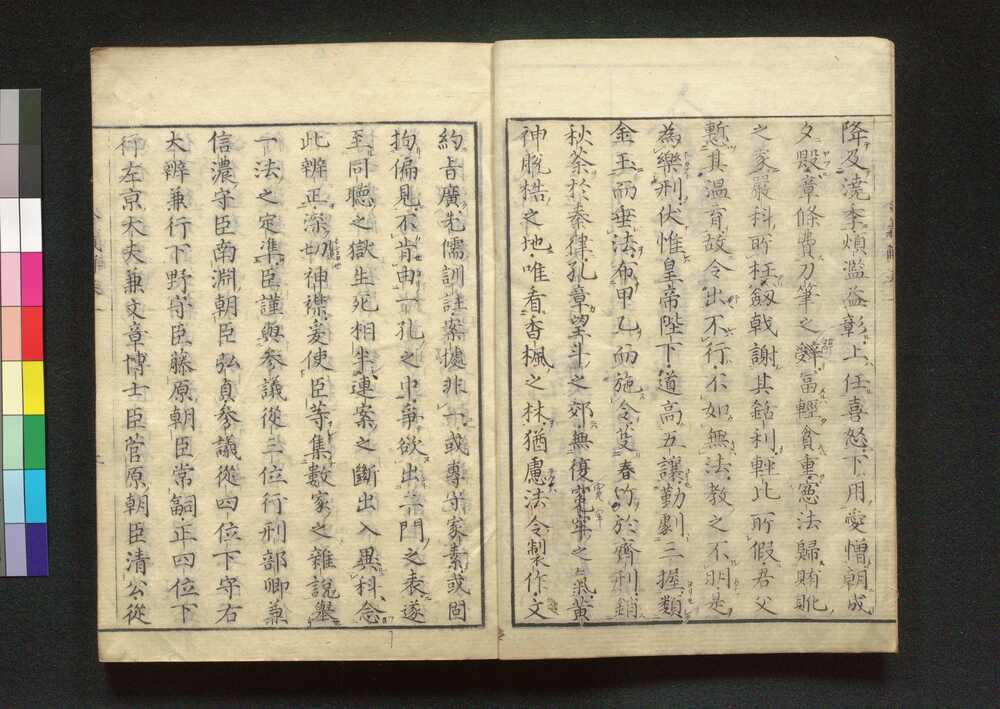 降及澆季煩濫益彰上任喜怒下用愛憎朝成
夕毀章條費刀筆之辭富輕貧重憲法歸賄貨
之家嚴科所枉劔戟謝其銛利軽比所假君父
慙其溫育故令出不行不如無法教之不明是
為樂刑伏惟皇帝陛下道高五讓勤劇三握類
金玉而垂法布甲乙而施令芟春竹於齊刑銷
秋荼於秦律孔章望斗之郊無復寃牢之氣黃
神脫梏之地唯看香楓之林猶慮法令製作文
約旨廣先儒訓註案據非一或專守家素或固
拘偏見不肯由一孔之中爭欲出二門之表遂
至同聽之獄生死相半連案之斷出入異科念
此辨正深切神襟爰使臣等集數家之雜說舉
一法之定準臣謹與參議從三位行刑部卿兼
信濃守臣南淵朝臣弘貞參議從四位下守右
大辨兼行下野守臣藤原朝臣常嗣正四位下
行左京大夫兼文章博士臣菅原朝臣清公從